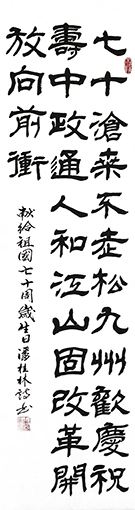 七十滄桑不老松九州歡慶祝
壽中政通人和江山固改革開
放向前衝
献給祖國七十周歲生日潘桂林詩書